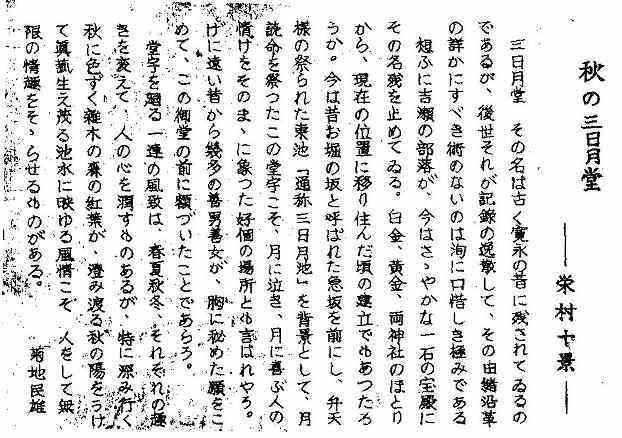 秋の三日月堂
――栄村十景――
三日月堂　その名は古く寛永の昔に残されてゐるの
であるが、後世それが記録の逸散して、その由緒沿革
の詳かにすべき術のないのは洵に口惜しき極みである
想ふに吉瀬の部落が、今はさゝやかな一石の宝殿に
その名残を止めてゐる。白金、黄金、両神社のほとり
から、現在の位置に移り住んだ頃の建立でもあつたろ
うか。今は昔お堀の坂と呼ばれた急坂を前にし、弁天
様の祭られた東池「通称三日月池」を背景として、月
読命を祭つたこの堂宇こそ、月に泣き、月に喜ぶ人の
情けをそのまゝに象つた好個の場所とも言はれやう。
げに遠い昔から幾多の善男善女が、胸に秘めた願をこ
めて、この御堂の前に額づいたことであらう。
堂宇を廻る一連の風致は、春夏秋冬、それぞれの趣
きを変えて、人の心を潤すものあるが、特に深み行く
秋に色ずく雑木の森の紅葉が、澄み渡る秋の陽をうけ
て真菰生え茂る池水に映ゆる風情こそ　人をして無
限の情趣をそゝらせるものがある。
菊地民雄